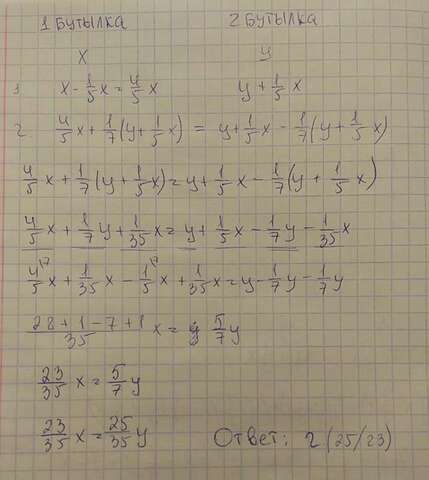 1 БУТЫЛКА 2 БУТЫЛКА
x y
1. x - 1/5 x = 4/5 x y + 1/5 x
2. 4/5 x + 1/7 (y + 1/5 x) = y + 1/5 x - 1/7 (y + 1/5 x)
4/5 x + 1/7 (y + 1/5 x) = y + 1/5 x - 1/7 (y + 1/5 x)
4/5 x + 1/7 y + 1/35 x = y + 1/5 x - 1/7 y - 1/35 x
4/5 \7 x + 1/35 x - 1/5 \7 x + 1/35 x = y - 1/7 y - 1/7 y
(28 + 1 - 7 + 1)/35 x = 5/7 y
23/35 x = 5/7 y
23/35 x = 25/35 y Ответ: 2 (25/23)